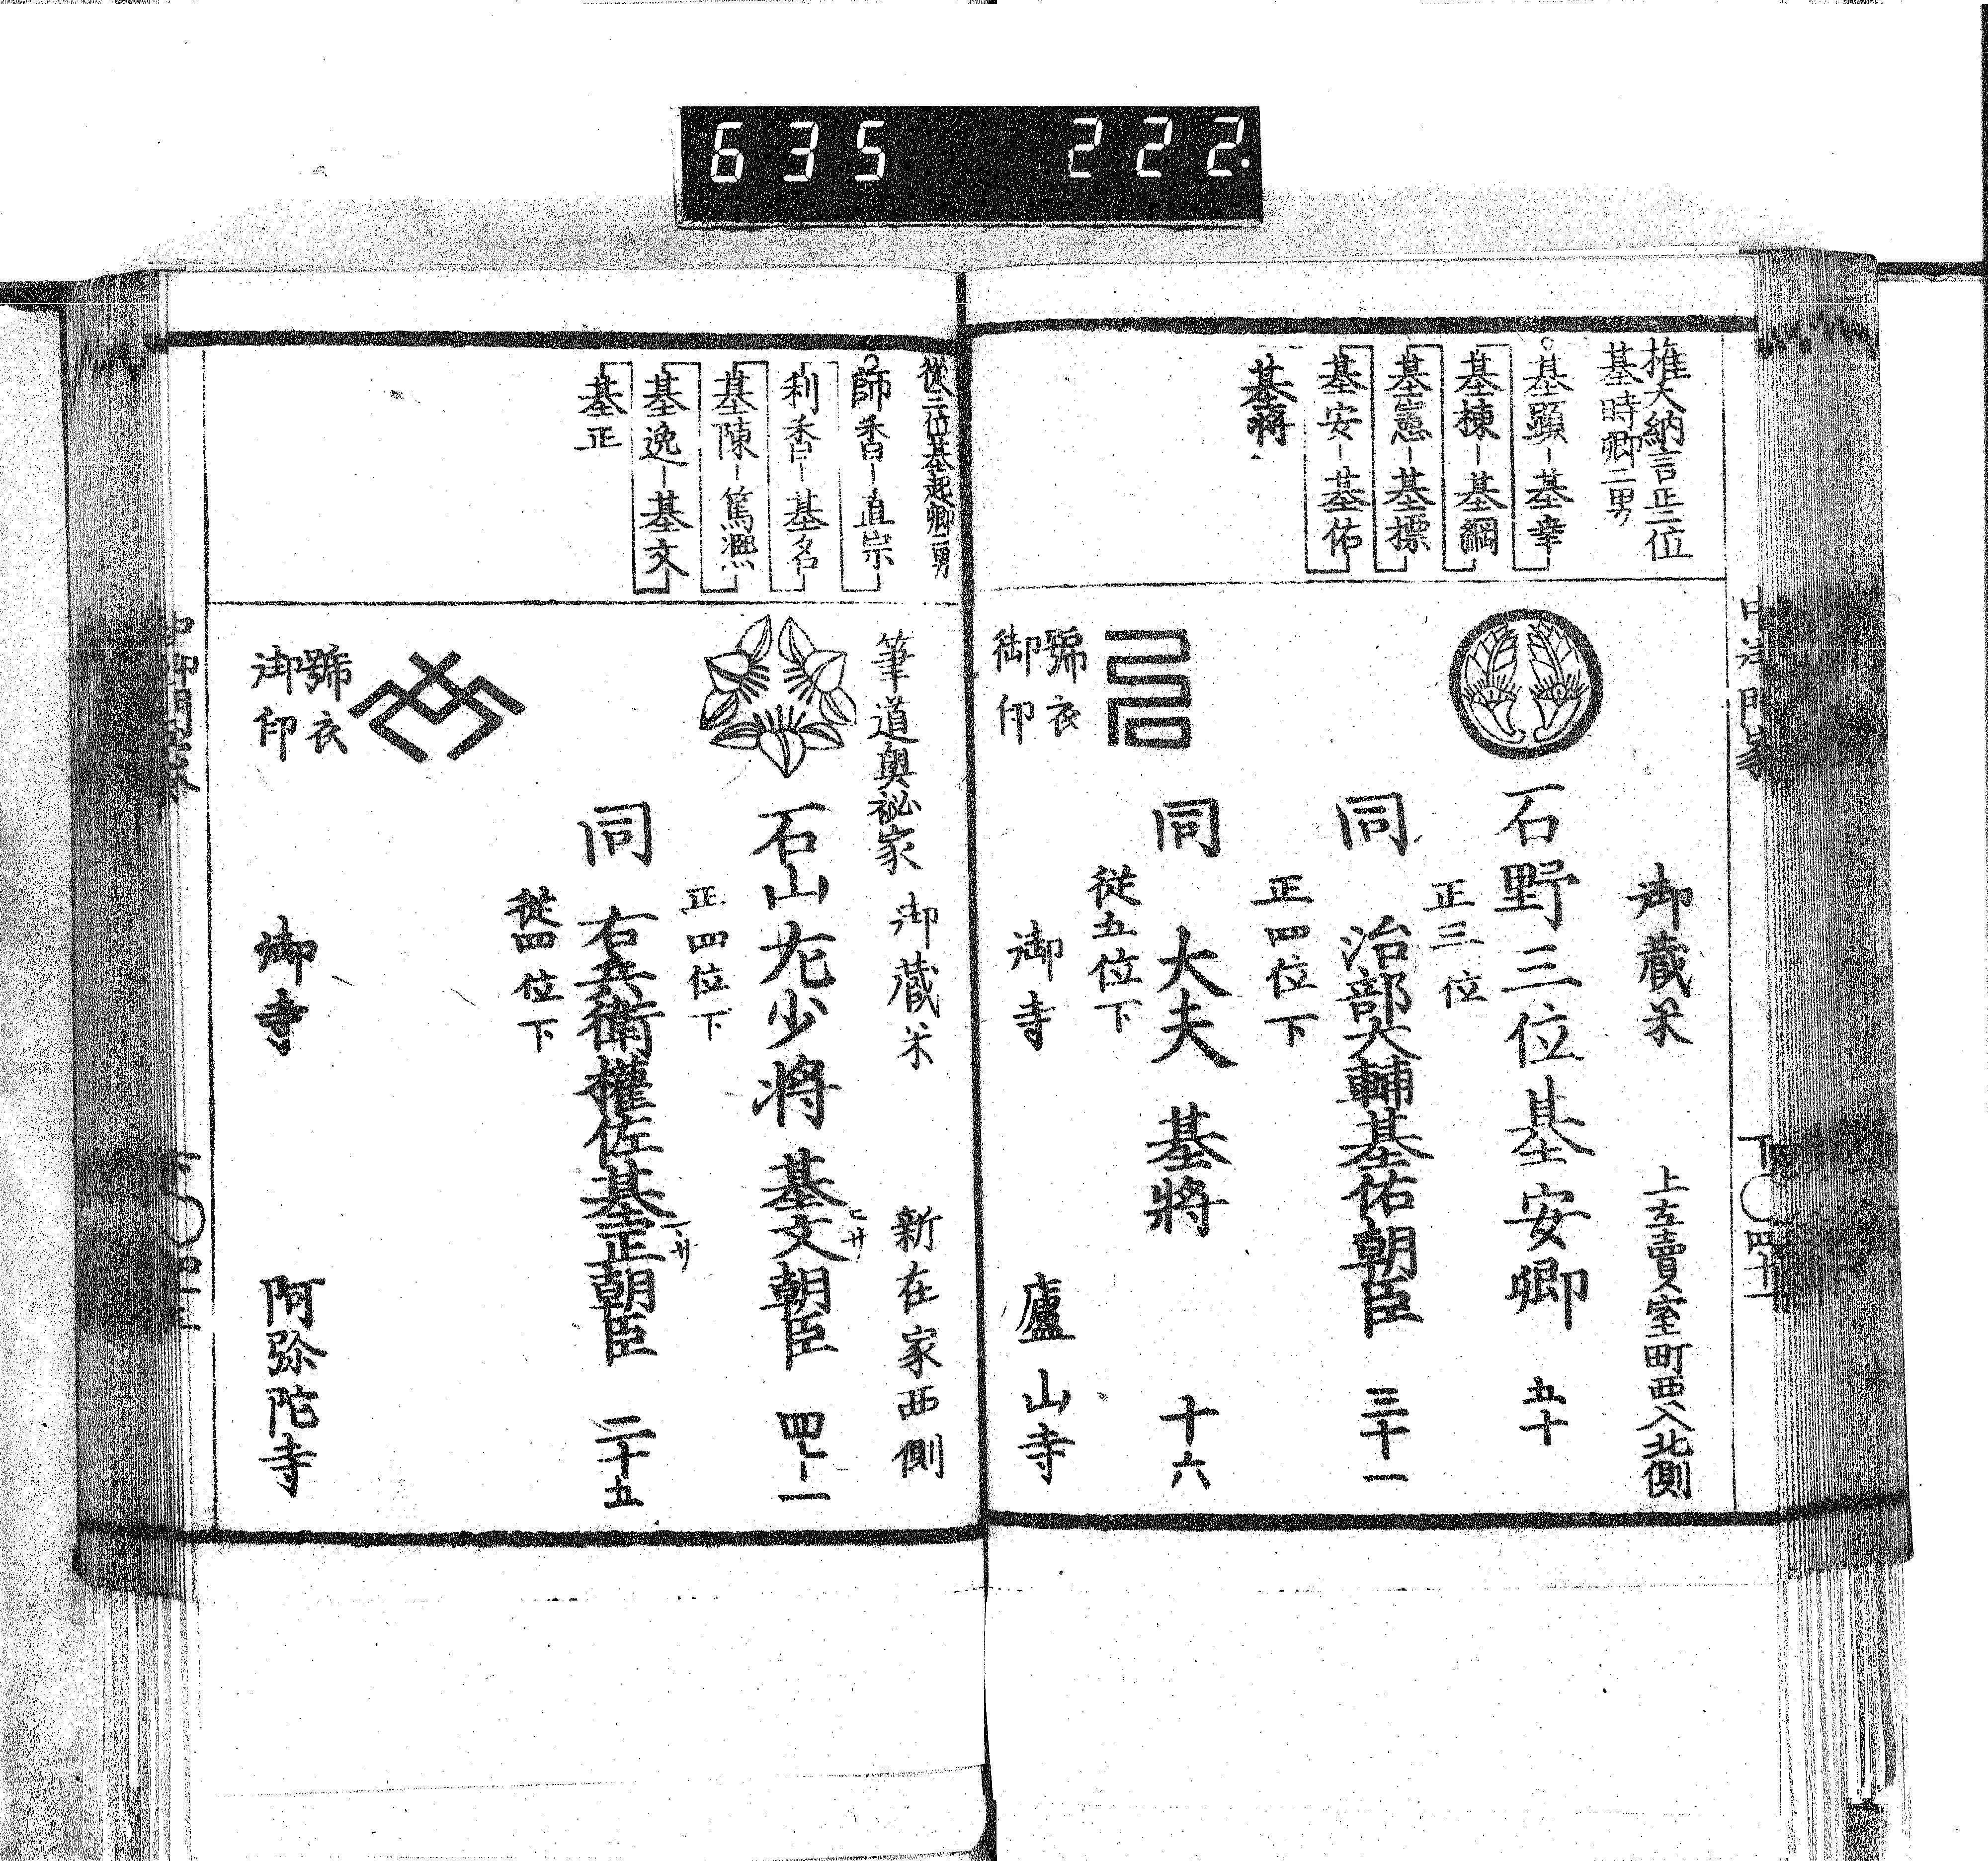 635 222.
権大納言正二位
基時卿二男
基顕-基幸
基棟-基綱
基憲-基標
基安-基佑
基將
御蔵米
上立賣室町西入北側
石野三位基安卿 五十
正三位
同 治部大輔基佑朝臣 三十一
正四位下
同 大夫 基將 十六
從五位下
號衣
御印
御寺 廬山寺
從二位基起卿二男
師香-直宗
利香-基名
基陳-篤熈
基逸-基文
基正
筆道奥祕家 御蔵米 新在家西側
石山左少將 基文朝臣
正四位下
同 右兵衛權佐基正朝臣 二十五
從四位下
號衣
御印
御寺 阿弥陀寺